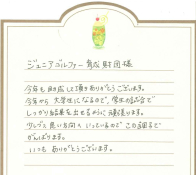 ジュニアゴルファー育成財団様
今年も助成して頂きありがとうございます。
今年から大学生になるので、学生の試合で
しっかり結果を出せるように頑張ります。
少しづつ良い方向へいっているのでこの調子で
がんばります。
いつもありがとうございます。